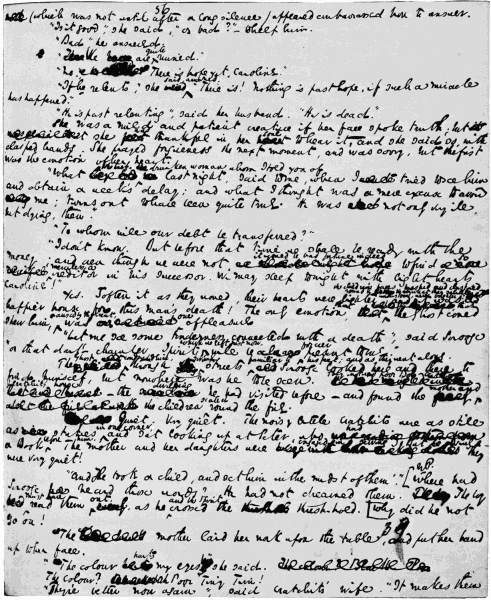 56
(which was not until after a long silence) appeared embarrassed how to answer.
"Is it good", she said, "or bad?" – to help him.
"Bad" he answered.
"We are quite ruined."
"No. There is hope yet, Caroline."
"If he relents", she said, amazed "there is! Nothing is past hope, if such a miracle
has happened."
"He is past relenting", said her husband. "He is dead."
She was a mild and patient creature if her face spoke truth; but
she was thankful in her soul to hear it, and she said so, with
clasped hands. She prayed forgiveness the next moment, and was sorry; but the first
was the emotion of her heart.
"What the half drunken woman whom I told you of
last night, said to me, when I tried to see him
and obtain a week's delay; and what I thought was a mere excuse to avoid
me; turns out to have been quite true. He was not only very ill,
but dying, then."
"To whom will our debt be transferred?"
"I don't know. But before that time we shall be ready with the
money; and even though we were not, it would be bad fortune indeed to find so
merciless a creditor in his successor. We may sleep tonight with light hearts
Caroline!"
Yes. Soften it as they would, their hearts were lighter.
happier house for this man's death! The only emotion that the Ghost could
show him, caused by the event, was one of pleasure.
"Let me see some tenderness connected with a death", said Scrooge
"or that dark chamber, Spirit, will be for ever present to me."
The Ghost conducted him through several streets familiar to his feet; and as they went along, Scrooge looked here and there to
find himself, but nowhere was he to be seen. They entered
poor Bob Cratchit's house; the dwelling he had visited before – and found the mother and
the children seated round the fire.
Quiet. Very quiet. The noisy little Cratchits were as still
as statues in one corner, and sat looking up at Peter, who had
a Book before him. The mother and her daughters were engaged in sewing. But surely they
were very quiet!
"'And he took a child, and set him in the midst of them.'" Where had
Scrooge heard those words? He had not dreamed them. The boy
must have read them out, as he and the Spirit crossed the threshold. Why did he not
go on!
The mother laid her work upon the table, and put her hand
up to her face.
"The colour hurts my eyes" she said.
The colour? Ah Poor Tiny Tim!
"They're better now again", said Cratchit's wife. "It makes them